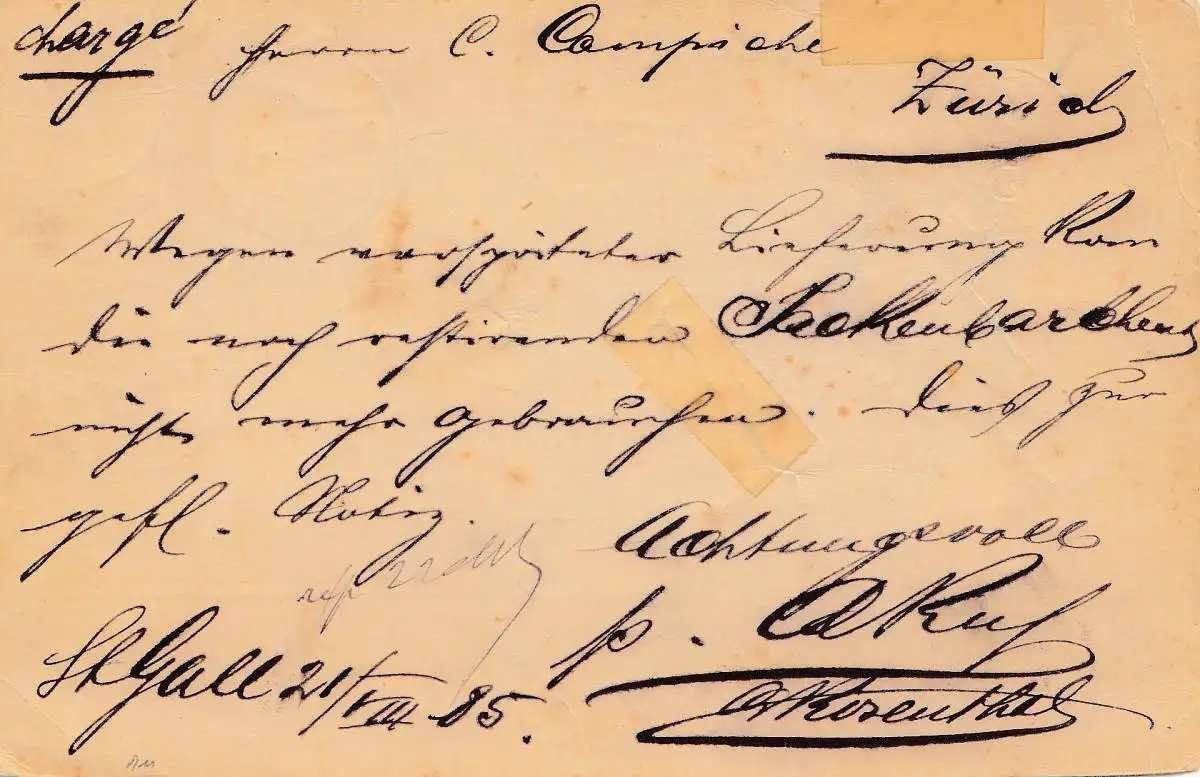 chargé Herrn C. Campiche
Zürich
Wegen verspäteter Lieferung kan
die noch restirenden
nicht mehr gebrauchen. Dies zur
gefl. Notiz.
Achtungsvoll
St Gall 21/VIII 85. p.
Rosenthal